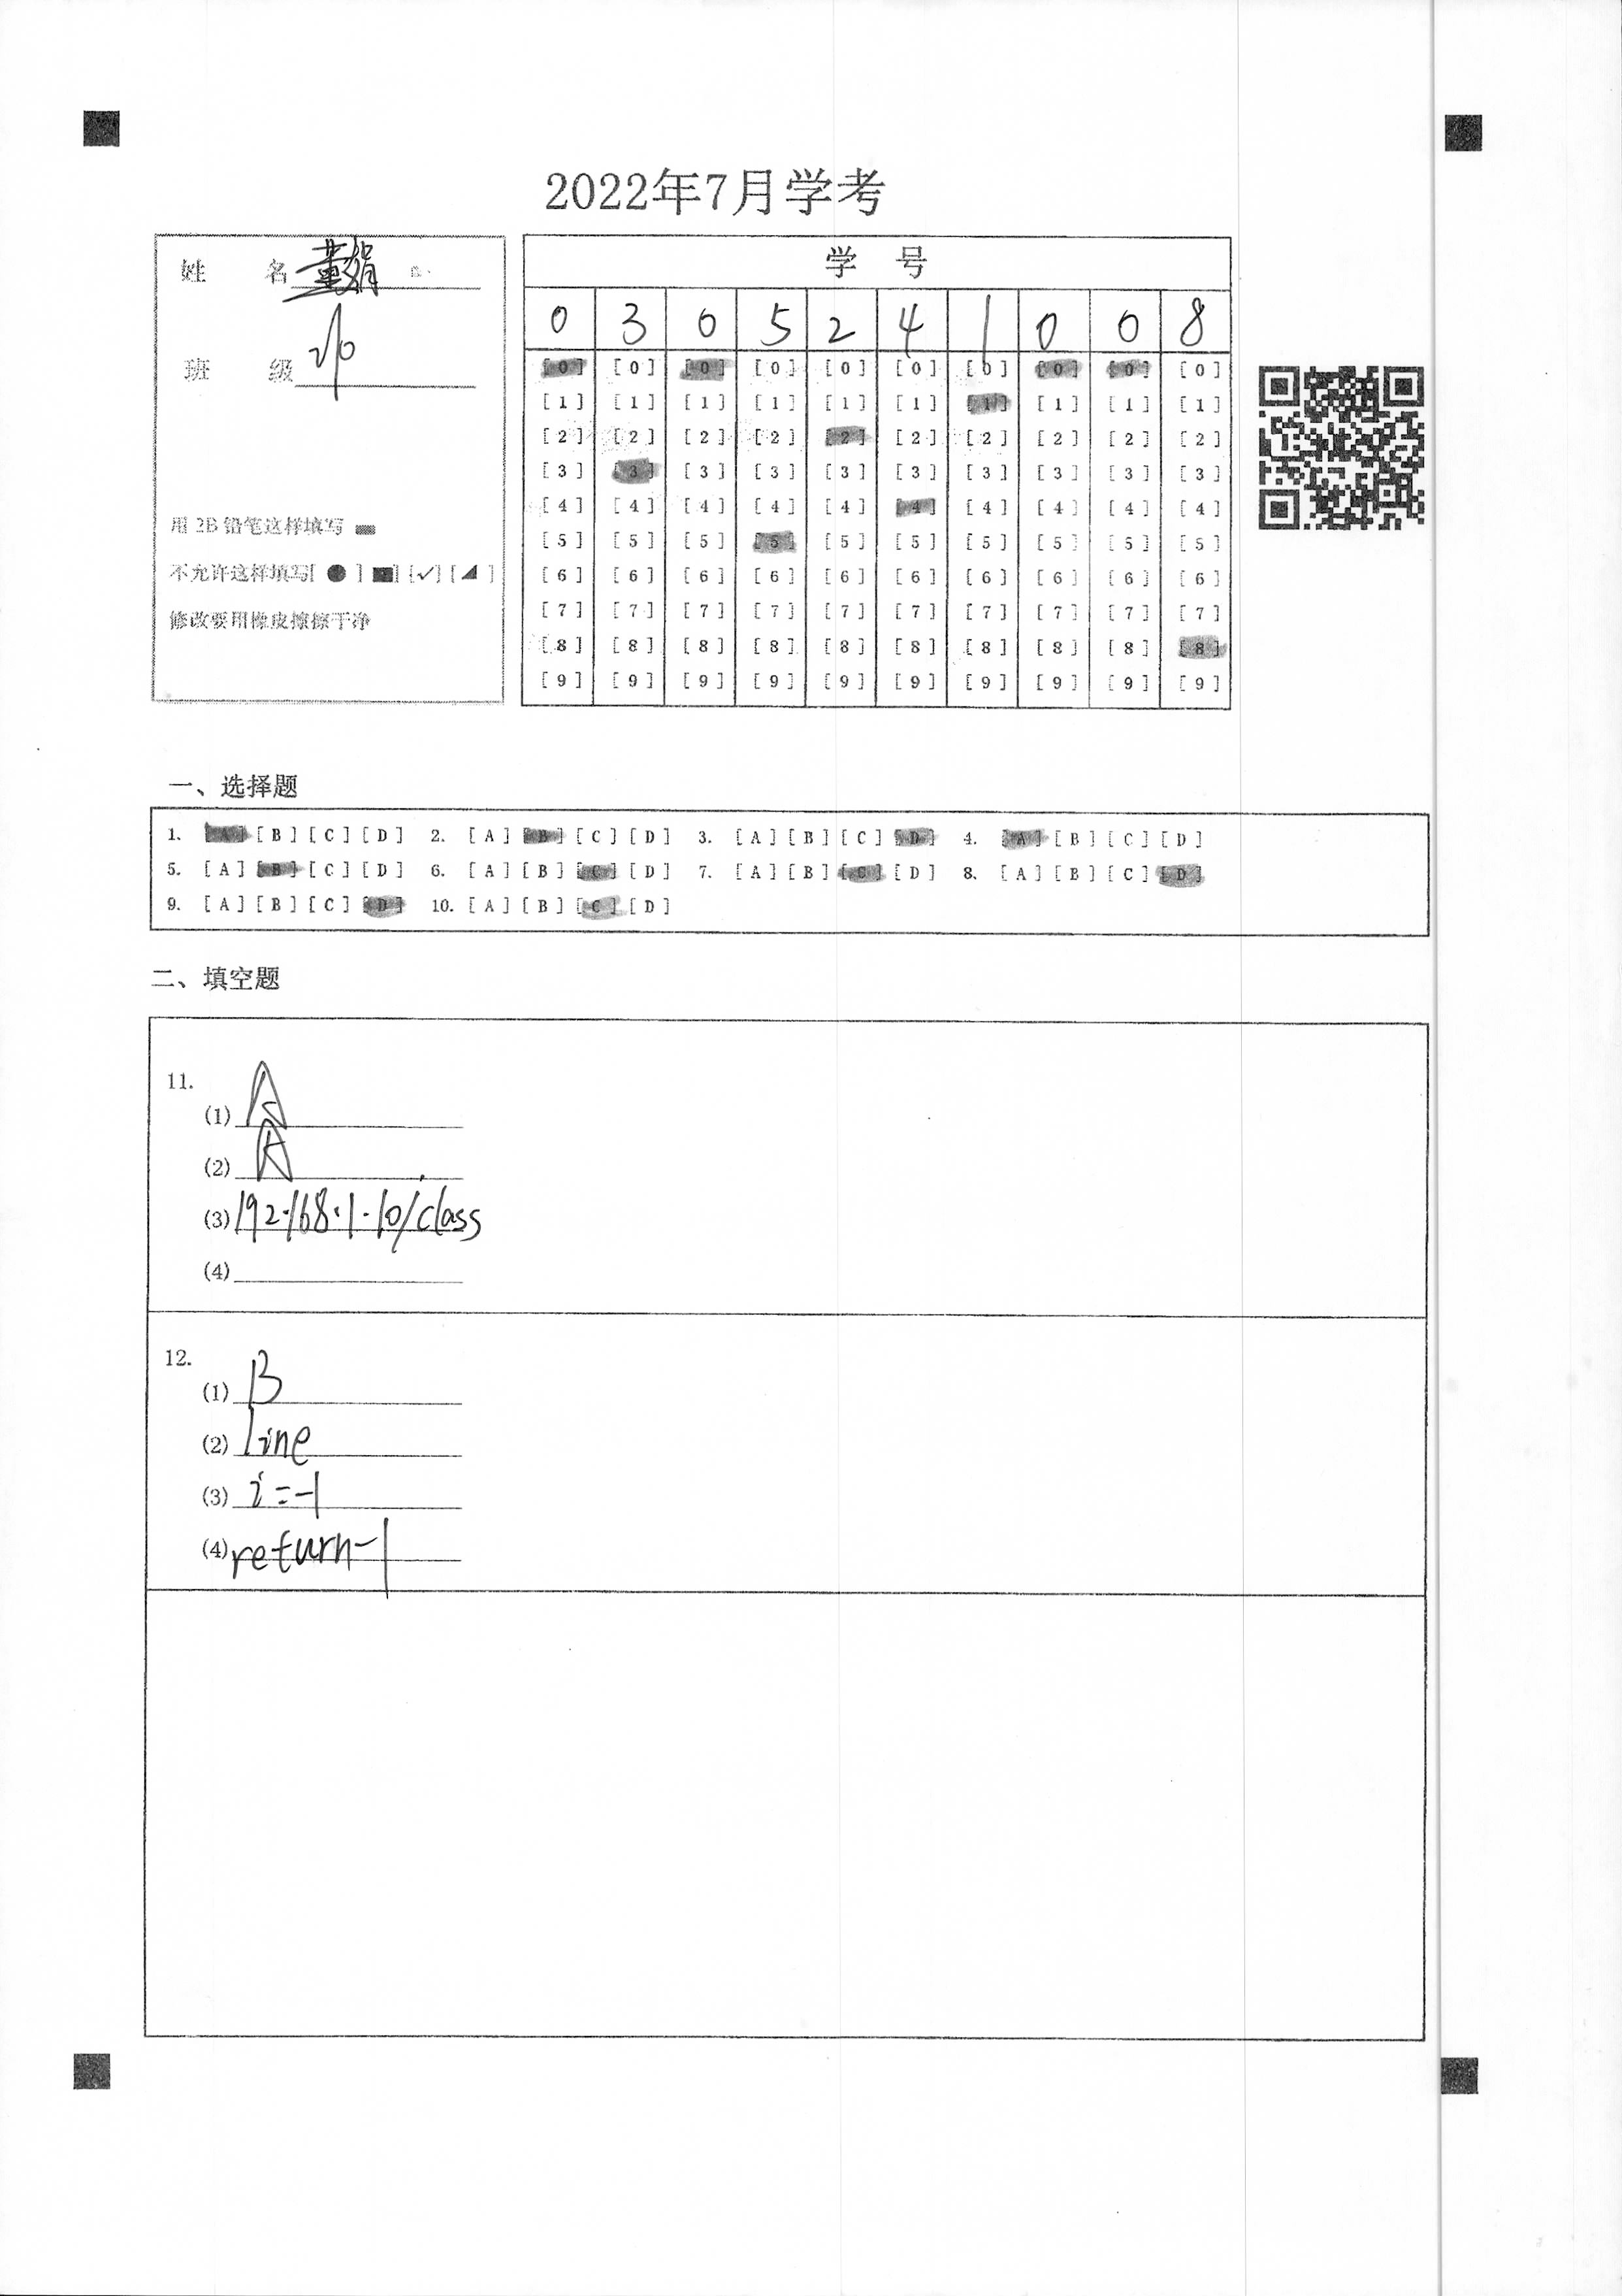 2022年7月学考
姓 名 董娟
班 级 210
用 2B 铅笔这样填写
不允许这样填写[ ● ] [■] [✓] [◢ ]
修改要用橡皮擦擦干净
学 号
0 3 0 5 2 4 1 0 0 8
[0] [0] [0] [0] [0] [0] [0] [0] [0] [0]
[1] [1] [1] [1] [1] [1] [1] [1] [1] [1]
[2] [2] [2] [2] [2] [2] [2] [2] [2] [2]
[3] [3] [3] [3] [3] [3] [3] [3] [3] [3]
[4] [4] [4] [4] [4] [4] [4] [4] [4] [4]
[5] [5] [5] [5] [5] [5] [5] [5] [5] [5]
[6] [6] [6] [6] [6] [6] [6] [6] [6] [6]
[7] [7] [7] [7] [7] [7] [7] [7] [7] [7]
[8] [8] [8] [8] [8] [8] [8] [8] [8] [8]
[9] [9] [9] [9] [9] [9] [9] [9] [9] [9]
一、选择题
1. [A] [B] [C] [D] 2. [A] [B] [C] [D] 3. [A] [B] [C] [D] 4. [A] [B] [C] [D]
5. [A] [B] [C] [D] 6. [A] [B] [C] [D] 7. [A] [B] [C] [D] 8. [A] [B] [C] [D]
9. [A] [B] [C] [D] 10. [A] [B] [C] [D]
二、填空题
11.
(1) A
(2) A
(3) 192.168.1.10/class
(4)
12.
(1) B
(2) line
(3) i=-1
(4) return-1